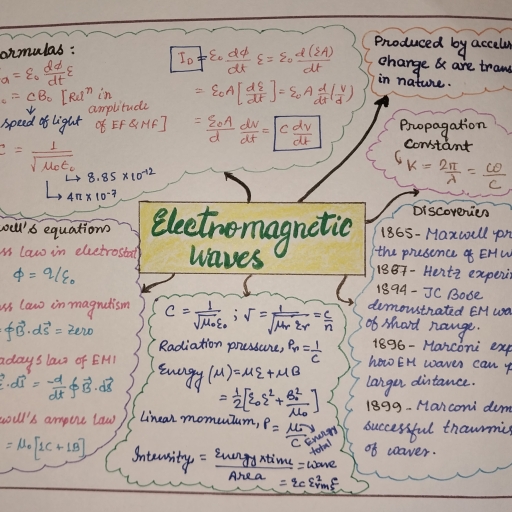 ormulas :
= ε₀ dφ/dt ε
₀ = cB₀ [Relⁿ in amplitude of EF & MF]
speed of light
C = 1/√μ₀ε₀
→ 8.85 × 10⁻¹²
→ 4π × 10⁻⁷
I_D = ε₀ dφ/dt ε = ε₀ d(εA)/dt
= ε₀A [dε/dt] = ε₀A d/dt (V/d)
= ε₀A/d dv/dt = c dv/dt
Produced by acceler
charge & are trans
in nature.
Propagation
Constant
K = 2π/λ = ω/C
Electromagnetic
waves
well's equations
ss law in electrostat
φ = q/ε₀
ss law in magnetism
= ∮B⃗.ds⃗ = zero
adays law of EMI
E⃗.dl⃗ = -d/dt ∮B⃗.ds⃗
well's ampere law
= μ₀ [IC + ID]
C = 1/√μ₀ε₀ ; v = 1/√μr εr = c/n
Radiation pressure, Pr = 1/C
Energy (μ) = με + μB
= 1/2 [ε₀ε² + B²/μ₀]
Linear momentum, P = μ/C
Energy
total
Intensity = Energy × time/Area = wave
Discoveries
1865 - Maxwell pr
the presence of EM w
1887 - Hertz experim
1894 - JC Bose
demonstrated EM wa
of short range.
1896 - Marconi exp
how EM waves can p
larger distance.
1899 - Marconi dem
successful transmiss
of waves.